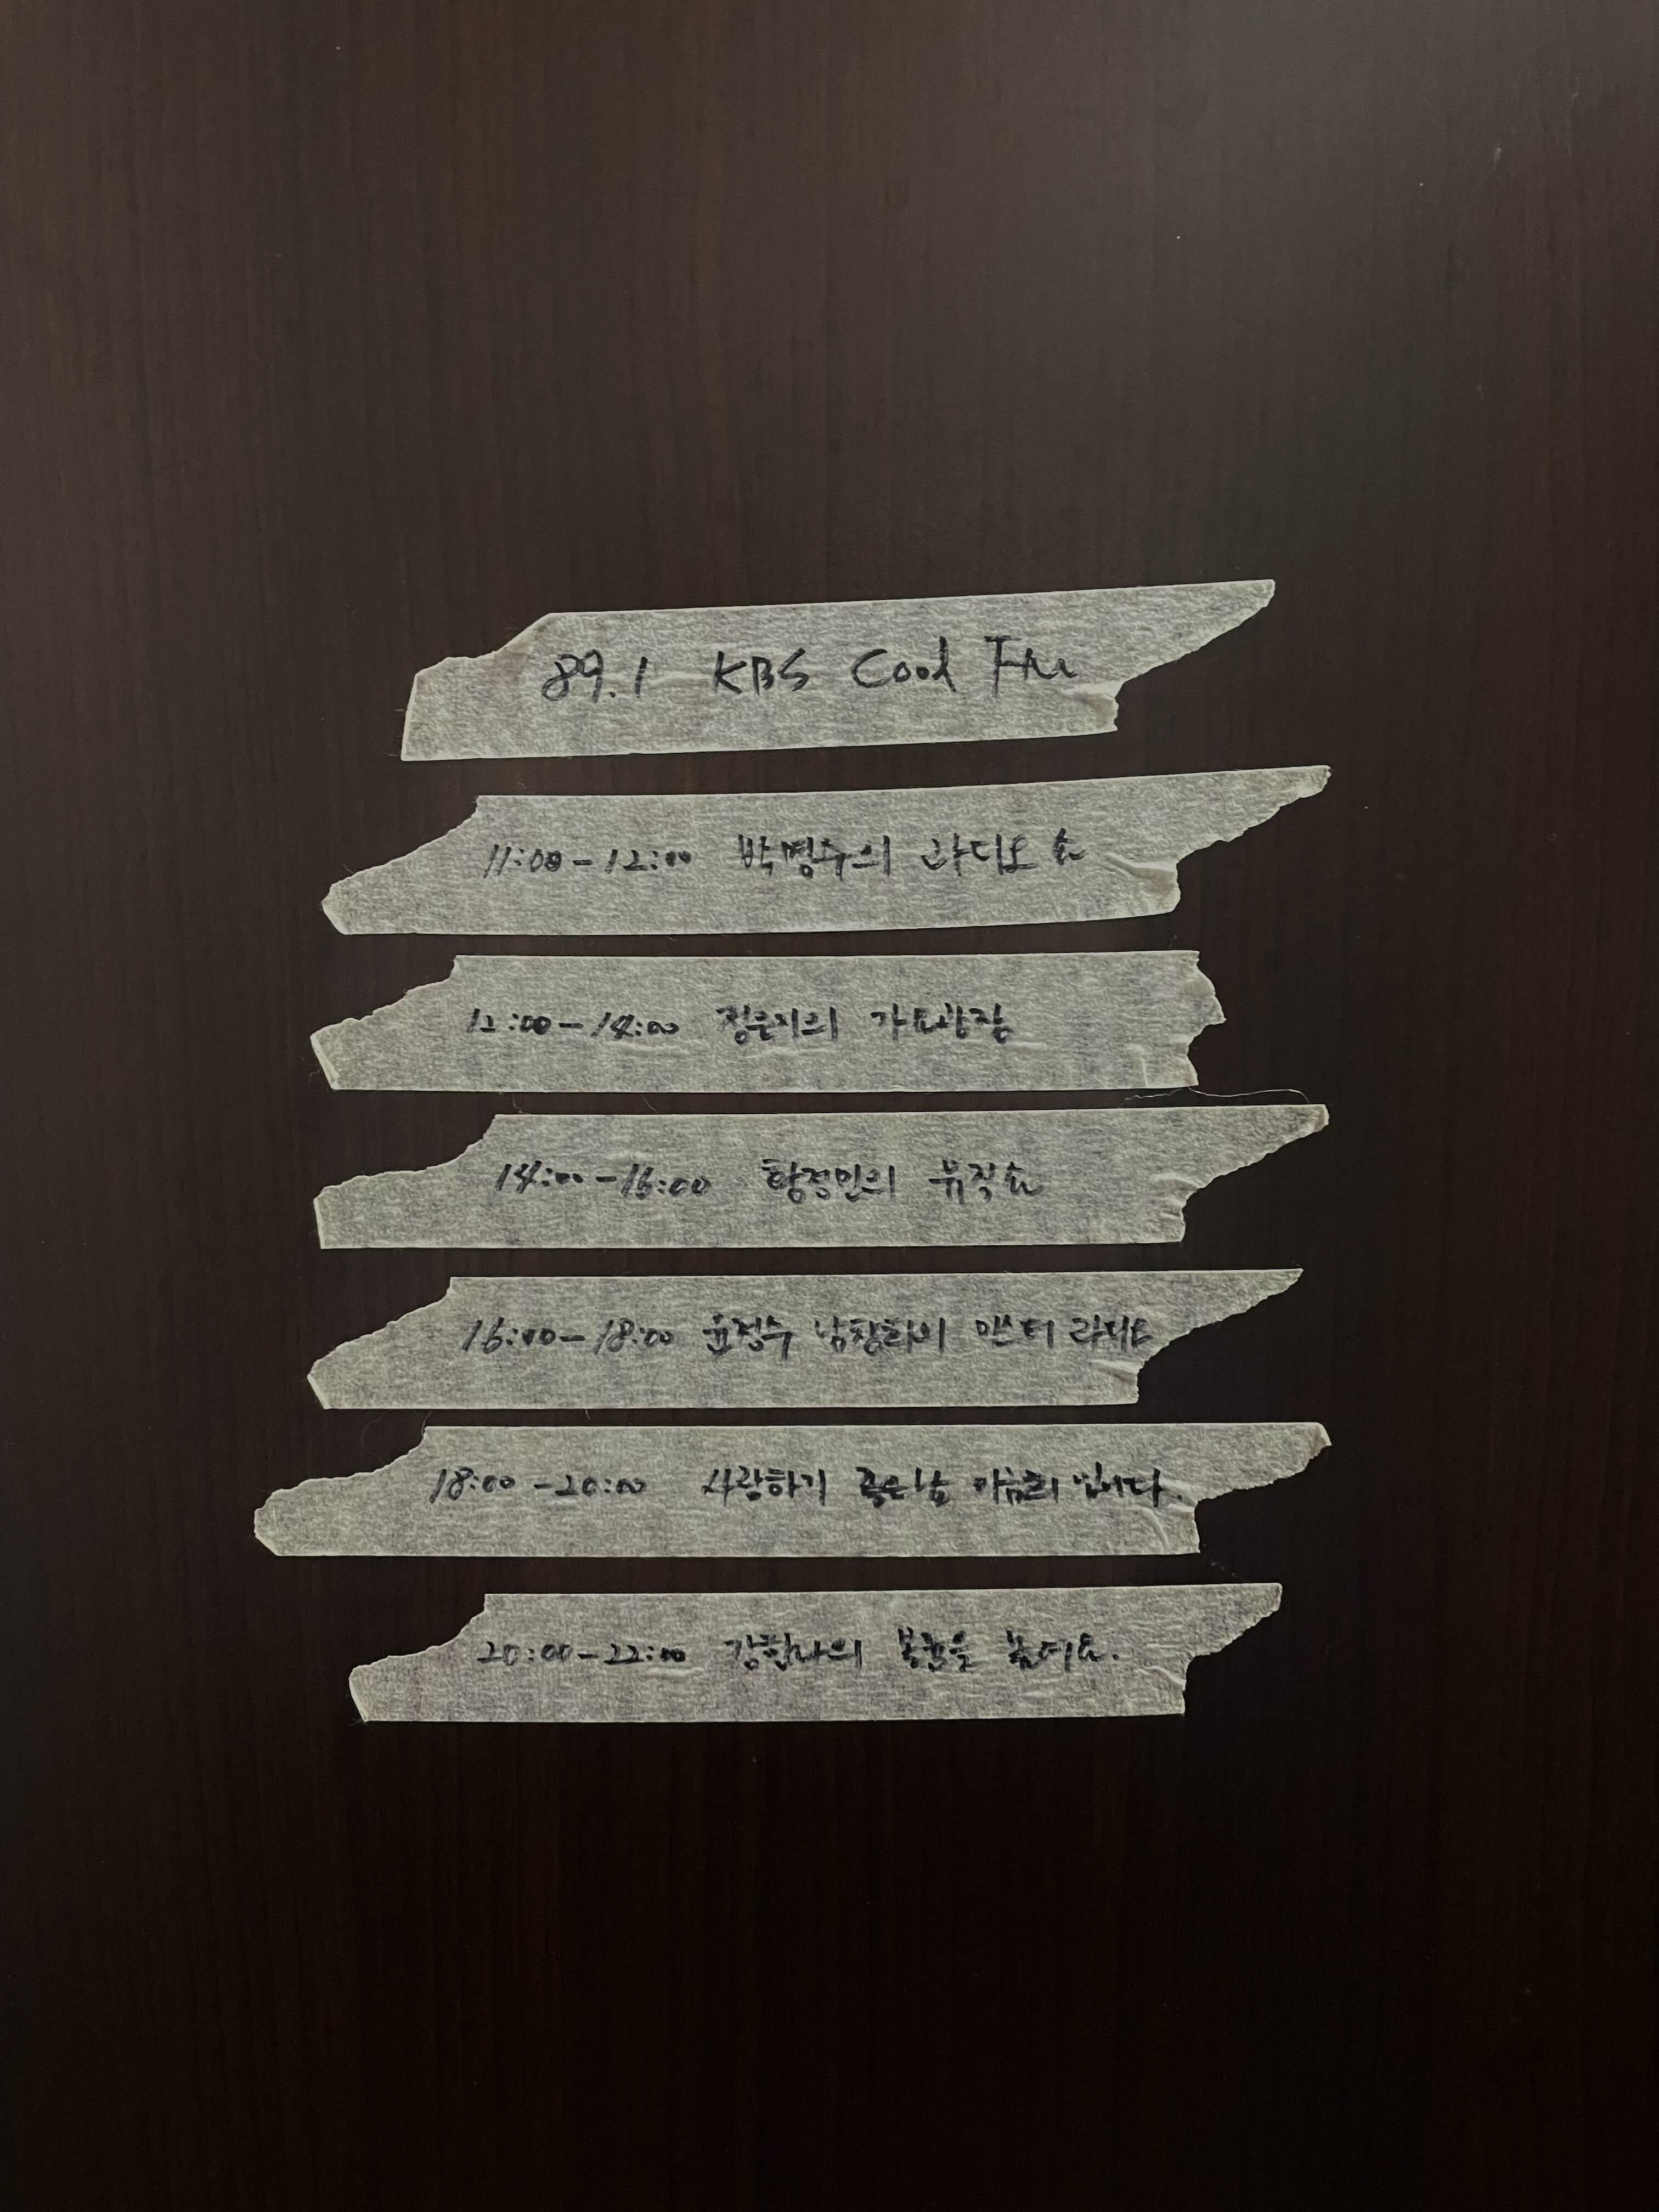 89.1 KBS Cool FM
11:00-12:00 박명수의 라디오 쇼
12:00-14:00 정은지의 가요광장
14:00-16:00 황정민의 뮤직쇼
16:00-18:00 윤정수 남창희의 미스터 라디오
18:00-20:00 사랑하기 좋은날 이금희 입니다.
20:00-22:00 강한나의 볼륨을 높여요.